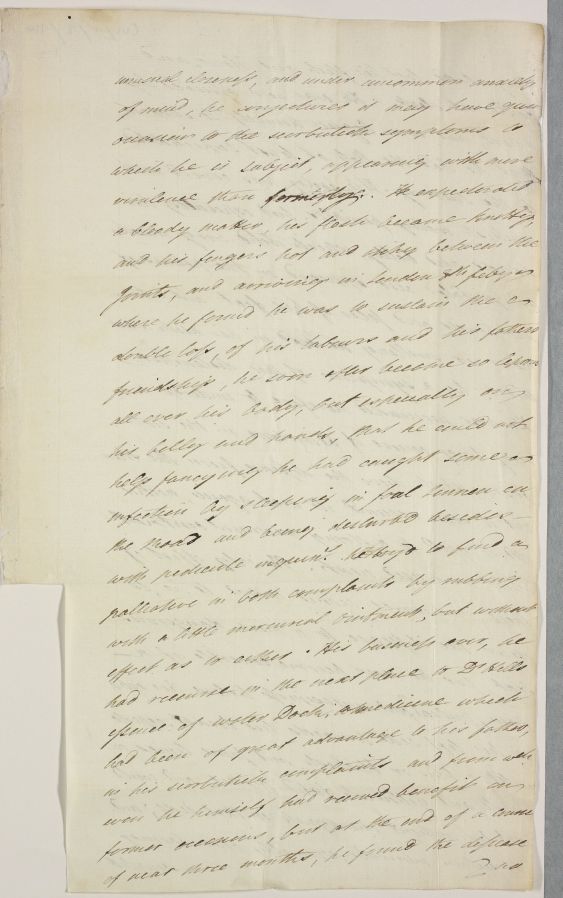 unusual closeness, and under uncommon anxiety
of mind, he conjectures it may have given
occasion to the scorbutick symptoms to
which he is subject, appearing with more
virulence than formerly. He expectorated
a bloody matter, his flesh became knotty,
and his fingers hot and itchy between the
joints, and arriving in London feby
where he found he was to sustain the
double loss, of his labours and his fathers
friendship, he soon after became so leprous
all over his body, but especially on
his belly and hands, that he could not
help fancying he had caught some
infection by sleeping in foul linnen on
the road and being disturbd besides
with pediculi inguinl. he tryd to find a
palliative in both complaints by rubbing
with a little mercurial ointment, but without
effect as to either. His business over, he
had recourse in the next place to Dr Hills
essence of water Dock, a medicine which
had been of great advantage to his father,
in his scorbutick complaints and from wch
even he himself had received benefit on
former occasions, but at the end of a course
of near three months, he found the disease